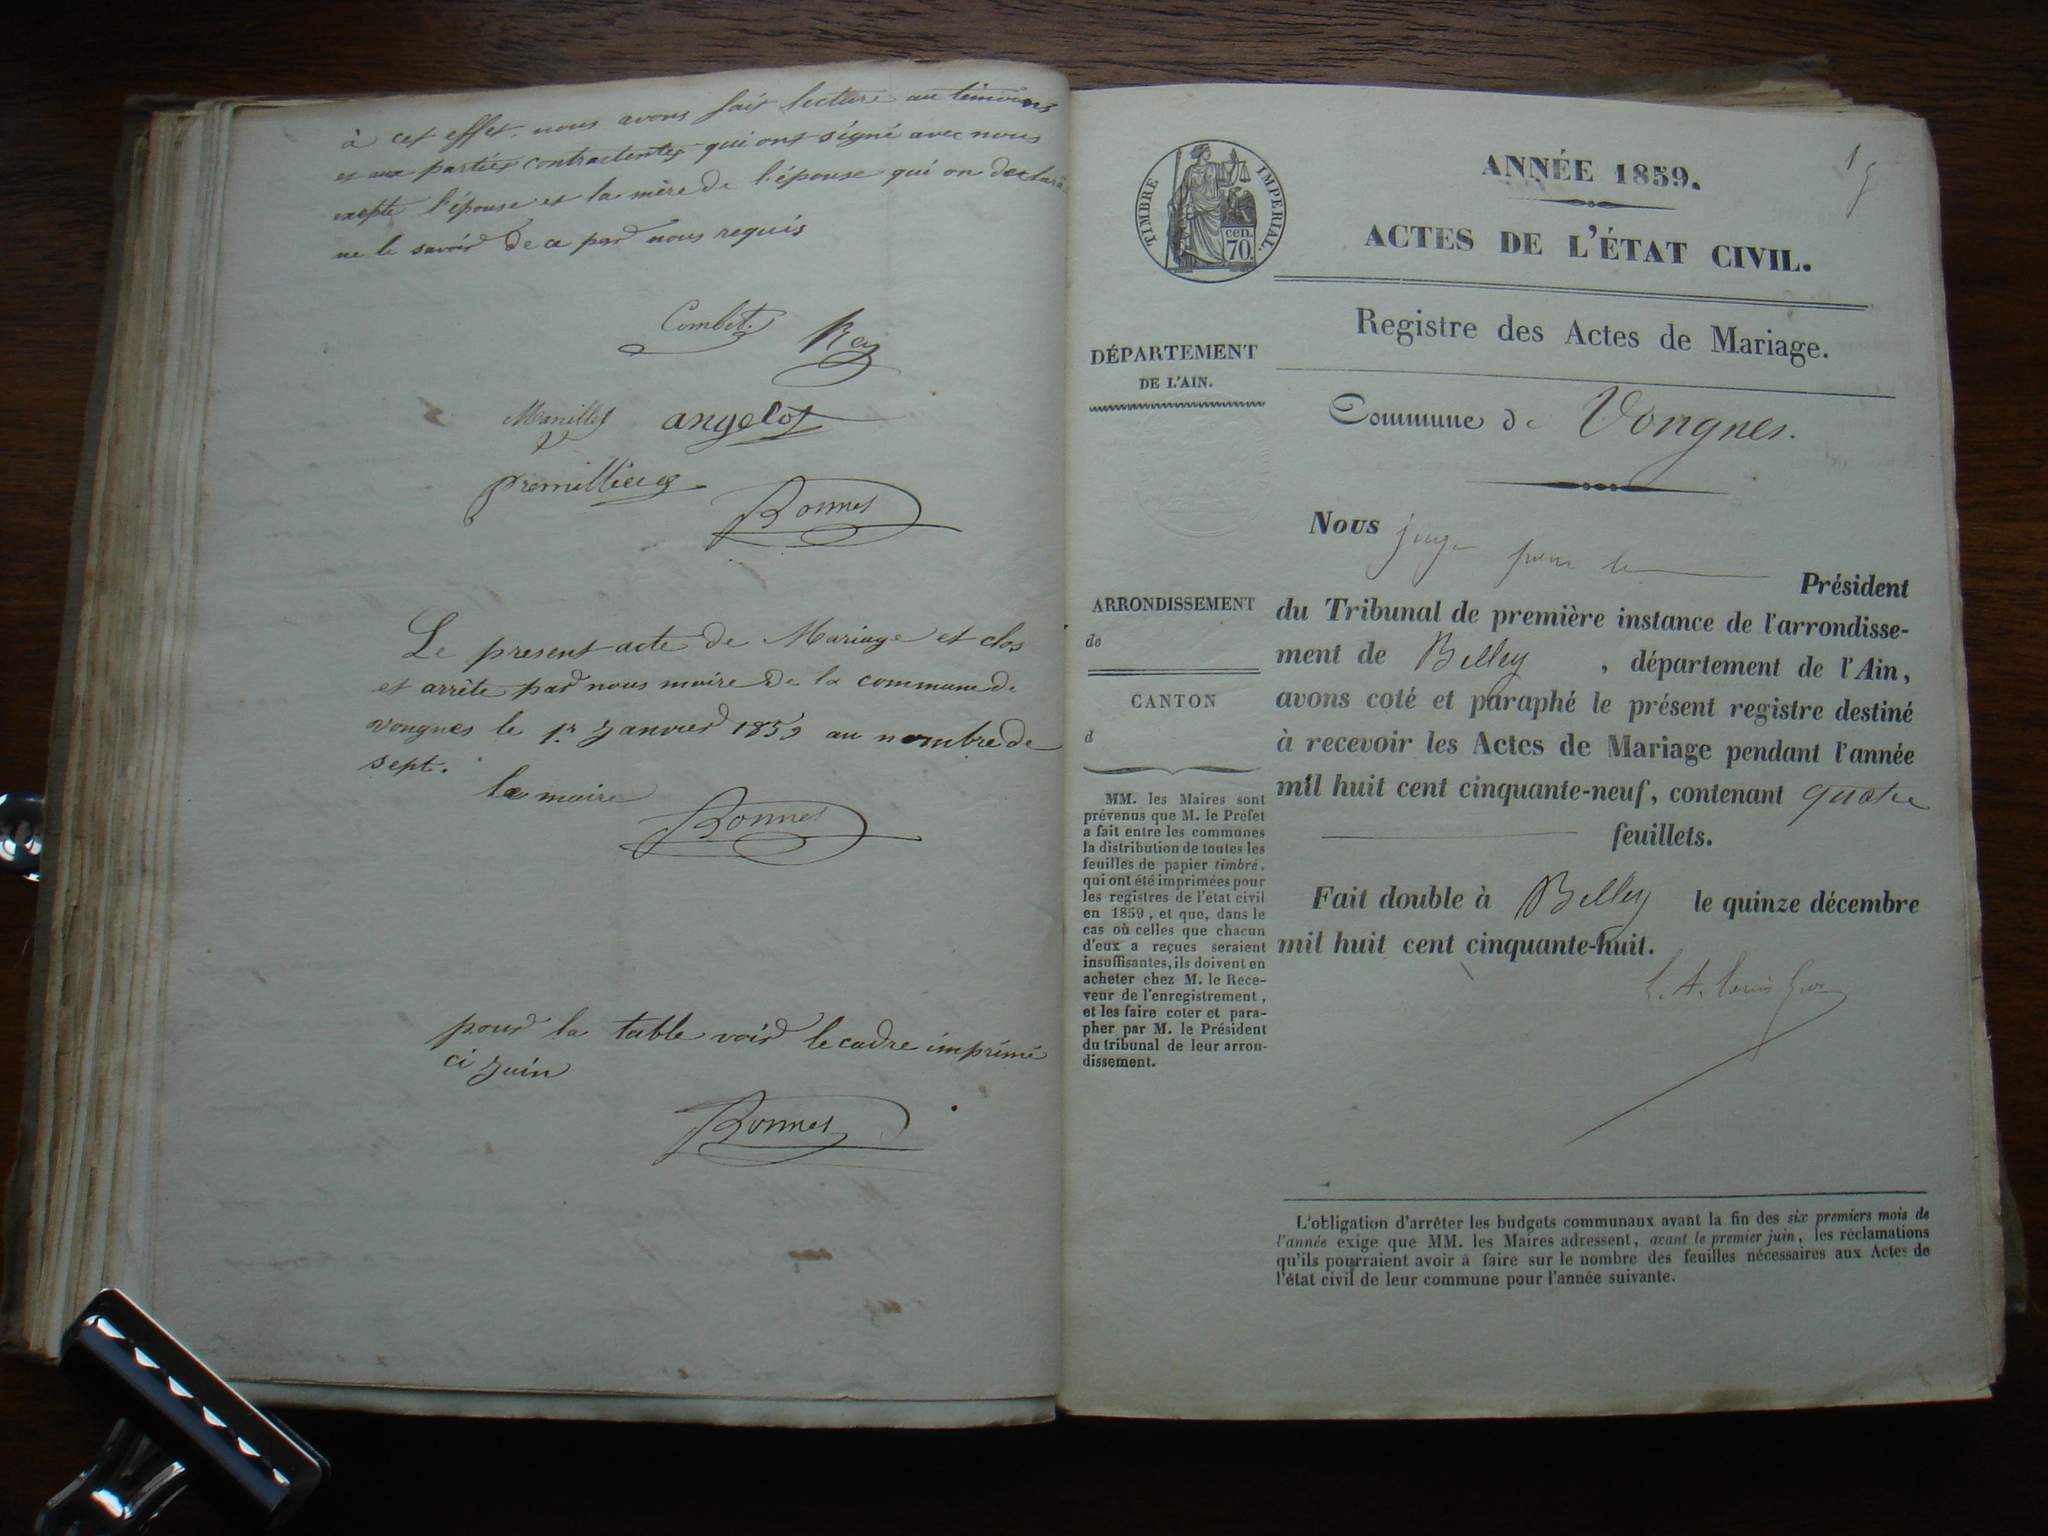 à cet effet. nous avons fait lecture au témoins
et aux parties contractentes qui ont signé avec nous
excepte l'épouse et la mère de l'épouse qui on declaré
ne le savoir de ce par nous requis
Combet. Rey
Manillet angelot
premillieu
Bonnet
Le present acte de Mariage et clos
et arrète par nous maire de la commune de
vongnes le 1r Janvier 1859 au nombre de
sept.
le maire
Bonnet
pour la table voir le cadre imprimé
ci Juin
Bonnet
TIMBRE IMPERIAL.
cen.
70.
ANNÉE 1859.
ACTES DE L'ÉTAT CIVIL.
Registre des Actes de Mariage.
Commune de Vongnes.
DÉPARTEMENT
DE L'AIN.
ARRONDISSEMENT
de
CANTON
d
MM. les Maires sont
prévenus que M. le Préfet
a fait entre les communes
la distribution de toutes les
feuilles de papier timbré,
qui ont été imprimées pour
les registres de l'état civil
en 1859, et que, dans le
cas où celles que chacun
d'eux a reçues seraient
insuffisantes, ils doivent en
acheter chez M. le Rece-
veur de l'enregistrement,
et les faire coter et para-
pher par M. le Président
du tribunal de leur arron-
dissement.
Nous juge pour le Président
du Tribunal de première instance de l'arrondisse-
ment de Belley, département de l'Ain,
avons coté et paraphé le présent registre destiné
à recevoir les Actes de Mariage pendant l'année
mil huit cent cinquante-neuf, contenant quatre
feuillets.
Fait double à Belley le quinze décembre
mil huit cent cinquante-huit.
L'obligation d'arrêter les budgets communaux avant la fin des six premiers mois de
l'année exige que MM. les Maires adressent, avant le premier juin, les réclamations
qu'ils pourraient avoir à faire sur le nombre des feuilles nécessaires aux Actes de
l'état civil de leur commune pour l'année suivante.